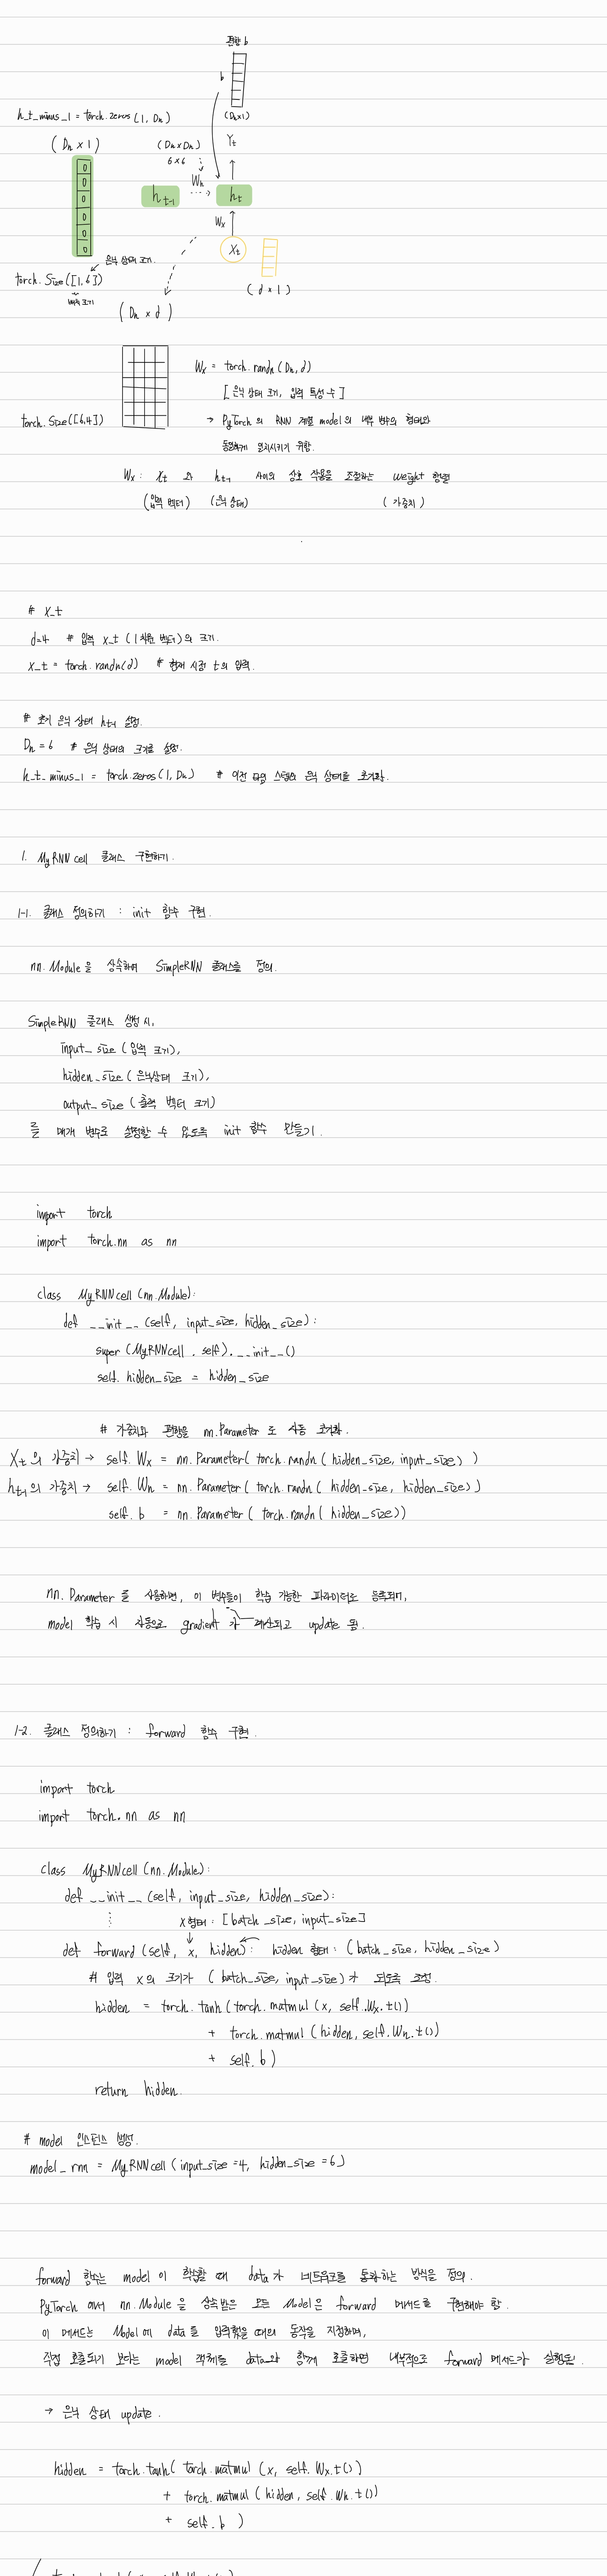 편향 b
b
(Dh×1)
h_t_minus_1 = torch.zeros (1, Dh)
(Dh × 1)
(Dh×Dh)
6×6
Yt
Wh
0
0
0
0
0
0
ht-1
ht
Wx
Xt
은닉 상태 크기.
torch.Size([1,6])
배치 크기
(d × 1)
(Dh × d)
Wx = torch.randn (Dh, d)
[은닉 상태 크기, 입력 특성 수]
torch.Size([6,4])
→ PyTorch 의 RNN 계열 model의 내부 변수의 형태와
동일하게 일치시키기 위함.
Wx : Xt 와 ht-1 사이의 상호 작용을 조절하는 weight 행렬
(입력 벡터) (은닉 상태) (가중치)
# X_t
d=4 # 입력 x_t (1차원 벡터)의 크기.
x_t = torch.randn(d) # 현재 시점 t의 입력.
# 초기 은닉 상태 ht-1 설정.
Dh = 6 # 은닉 상태의 크기를 설정.
h_t_minus_1 = torch.zeros (1, Dh) # 이전 타임 스텝의 은닉 상태를 초기화.
1. MyRNNcell 클래스 구현하기.
1-1. 클래스 정의하기 : init 함수 구현.
nn.Module을 상속하여 SimpleRNN 클래스를 정의.
SimpleRNN 클래스 생성 시,
input_size (입력 크기),
hidden_size (은닉상태 크기),
output_size (출력 벡터 크기)
를 매개 변수로 설정할 수 있도록 init 함수 만들기.
import torch
import torch.nn as nn
class MyRNNcell (nn.Module):
def __init__ (self, input_size, hidden_size) :
super (MyRNNcell . self). __init__()
self. hidden_size = hidden_size
# 가중치와 편향을 nn.Parameter 로 자동 초기화.
Xt의 가중치 → self. Wx = nn. Parameter( torch.randn ( hidden_size, input_size) )
ht-1의 가중치 → self. Wh = nn. Parameter ( torch.randn ( hidden_size, hidden_size) )
self. b = nn. Parameter ( torch.randn ( hidden_size))
nn. Parameter 를 사용하면, 이 변수들이 학습 가능한 파라미터로 등록되며,
model 학습 시 자동으로 gradient 가 계산되고 update 됨.
1-2. 클래스 정의하기 : forward 함수 구현.
import torch
import torch. nn as nn
class MyRNNcell (nn.Module):
def __init__ (self, input_size, hidden_size):
x형태 : [batch_size, input_size]
def forward (self, x, hidden): hidden 형태 : (batch_size, hidden_size)
# 입력 x의 크기가 (batch_size, input_size)가 되도록 조정.
hidden = torch.tanh (torch.matmul (x, self.Wx.t())
+ torch.matmul (hidden, self.Wh.t())
+ self. b)
return hidden.
# model 인스턴스 생성.
model_rnn = MyRNNcell (input_size =4, hidden_size =6)
forward 함수는 model 이 학습할 때 data 가 네트워크를 통과하는 방식을 정의.
PyTorch 에서 nn.Module 을 상속 받은 모든 Model 은 forward 메서드를 구현해야 함.
이 메서드는 Model 에 data 를 입력했을 때의 동작을 지정하며,
직접 호출되기 보다는 model 객체를 data와 함께 호출하면 내부적으로 forward 메서드가 실행됨.
→ 은닉 상태 update .
hidden = torch.tanh( torch.matmul (x, self. Wx.t())
+ torch.matmul (hidden, self. Wh. t())
+ self. b )